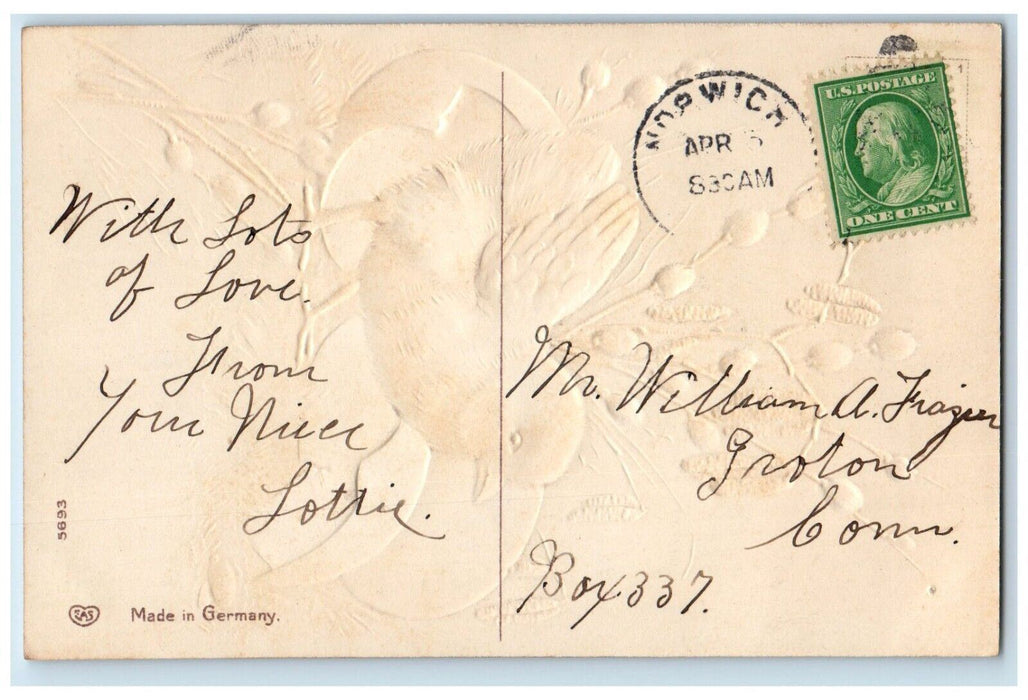 With Lots
of Love.
From
Your Niece
Lottie.
5693
EAS
Made in Germany.
NORWICH
APR 5
830AM
U.S. POSTAGE
ONE CENT
1
Mr. William A. Frazier
Groton
Conn.
Box 337.